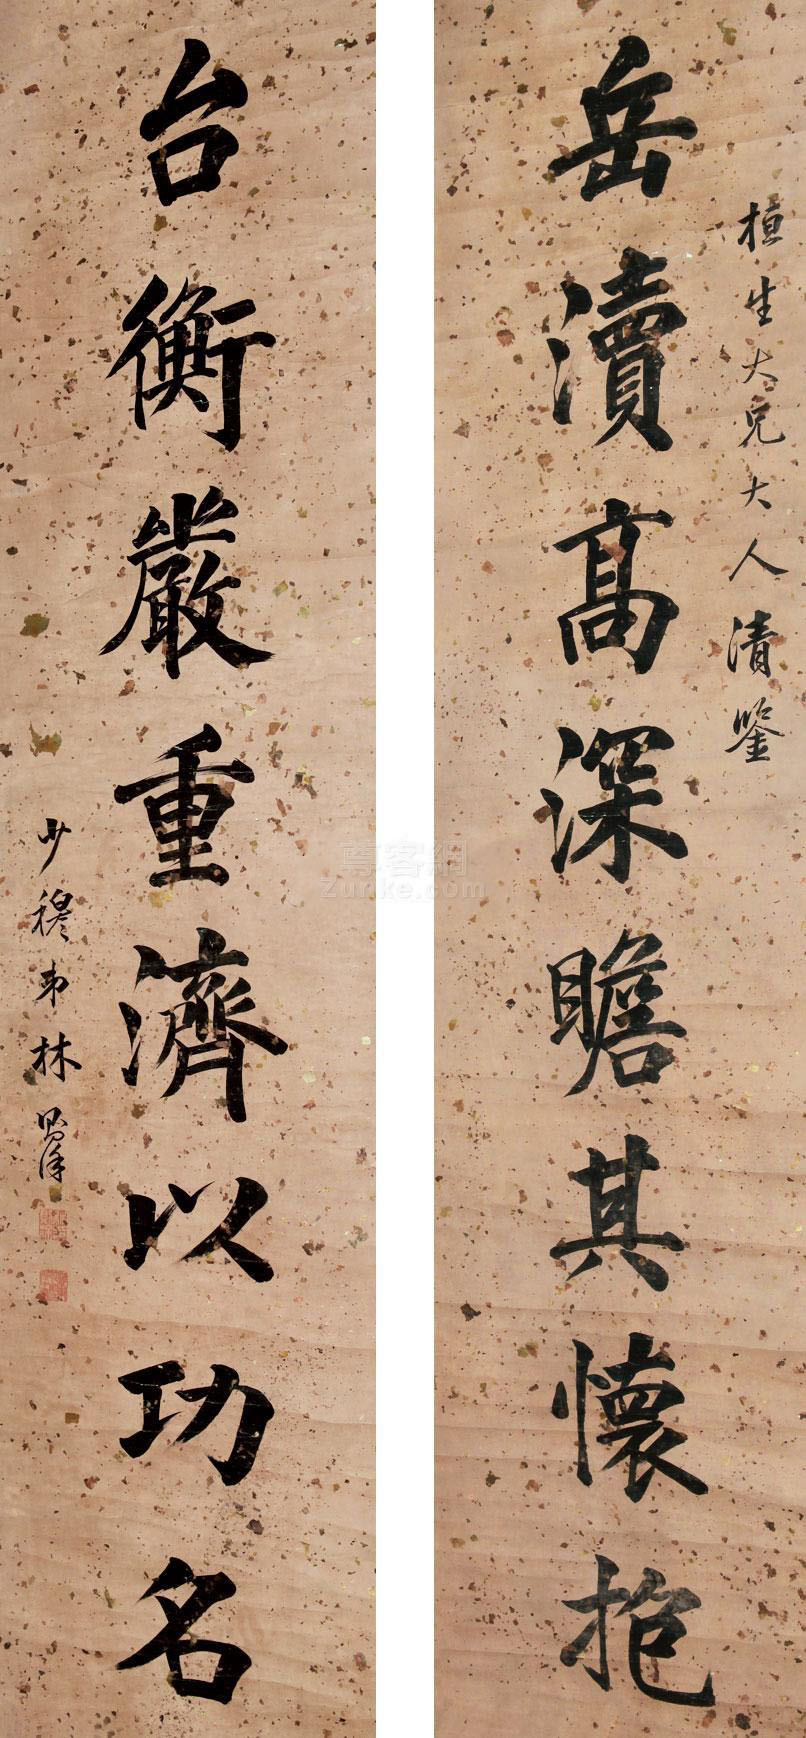 桓生大兄大人清鑒
岳瀆高深瞻其懷抱
台衡嚴重濟以功名
少穆弟林則徐
尊客網
Zunke.com